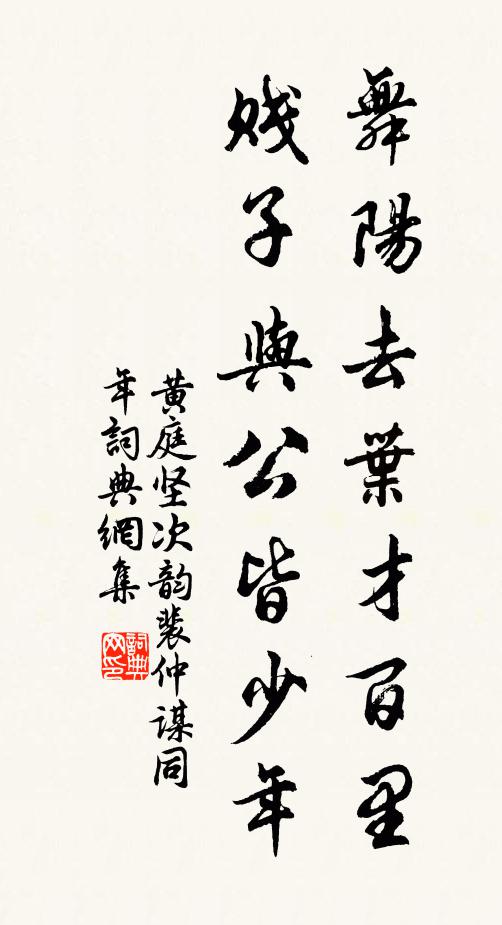 舞陽去葉才百里
賤子與公皆少年
黄庭坚次韵裴仲謀同
年詞典網集
詞典网印